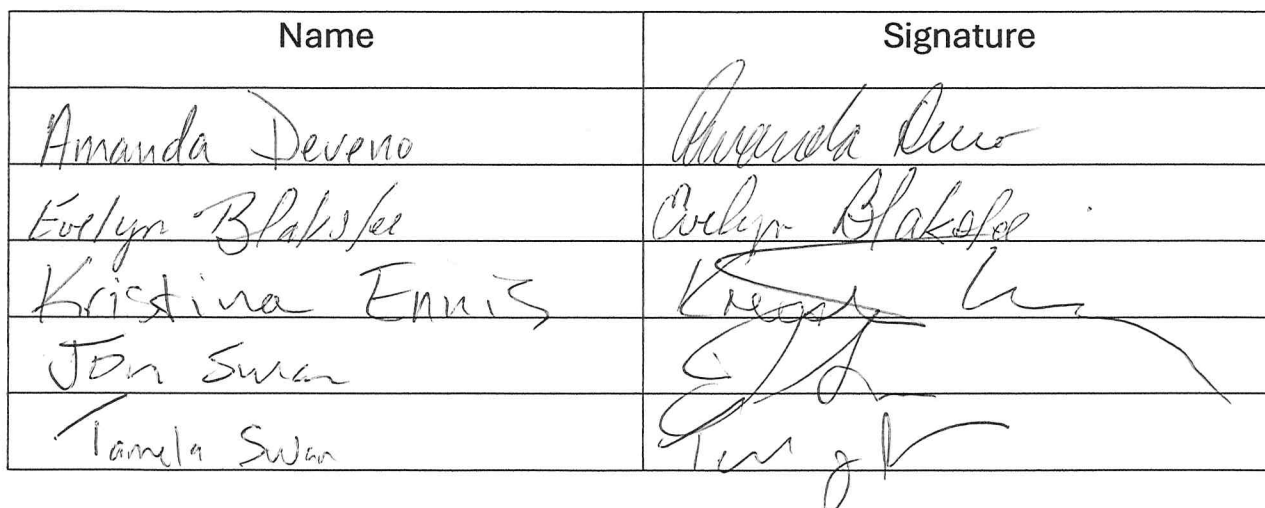 Name Signature
Amanda Deveno Amanda
Evelyn Blakslee Evelyn Blakslee
Kristina Ennis
Jon Swan
Tamela Swan